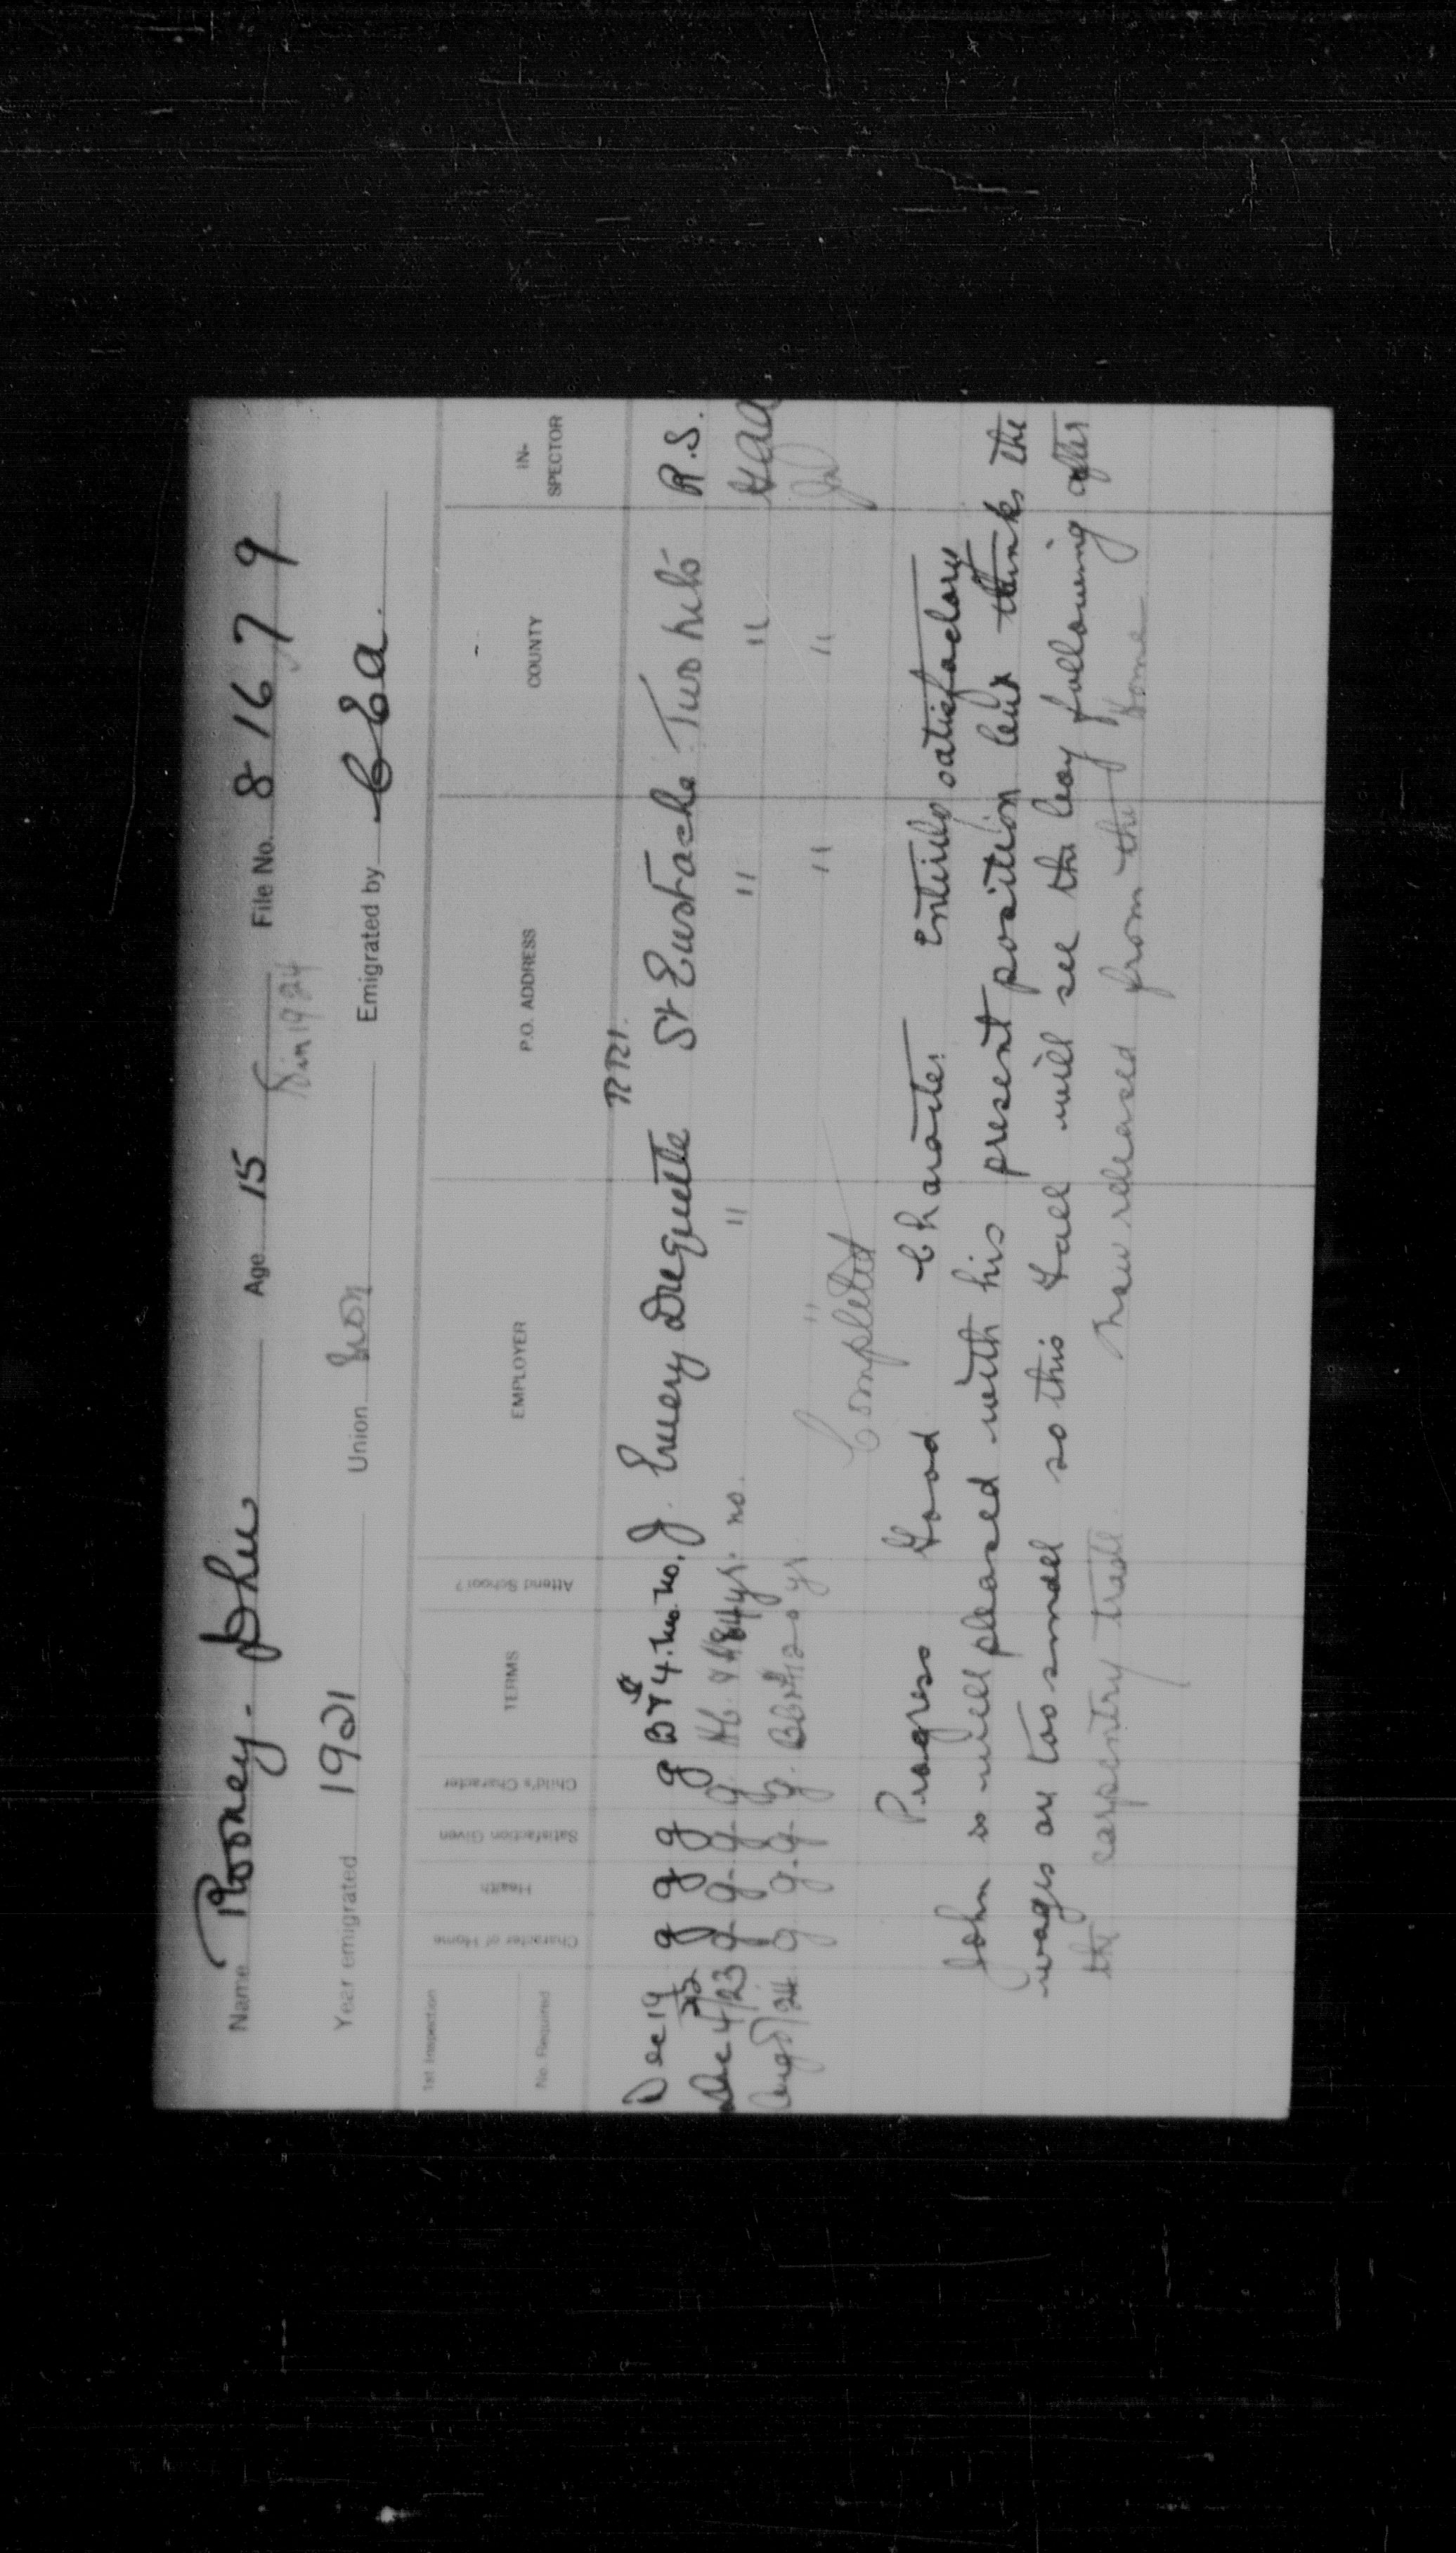 Name Rooney - John Age 15 File No. 8 16 7 9
in 1924
Year emigrated 1921 Union Non Emigrated by C E a.
1st Inspection
No. Required
Character of Home
Health
Satisfaction Given
Child's Character
TERMS
Attend School?
EMPLOYER
P.O. ADDRESS
COUNTY
IN-
SPECTOR
RR1.
Dec 19/22 g g g g no. J. Emery St Eustache R.S.
Dec 4/23 g g g g no. " " "
Aug 5/24 g g g g " " "
Completed
Progress Good Character Entirely satisfactory
John is well pleased with his present position but thinks the
wages are too small so this Fall will see the boy following after
the carpentry trade. Now released from the Home